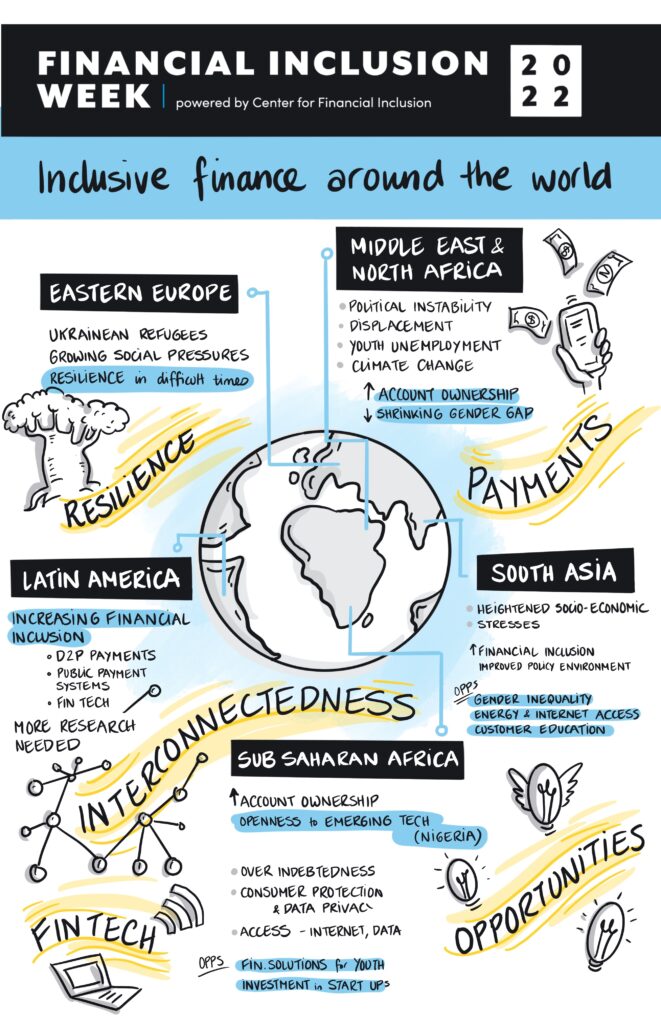 FINANCIAL INCLUSION
WEEK | powered by Center for Financial Inclusion
20
22
Inclusive finance around the world
MIDDLE EAST &
NORTH AFRICA
• POLITICAL INSTABILITY
• DISPLACEMENT
• YOUTH UNEMPLOYMENT
• CLIMATE CHANGE
↑ ACCOUNT OWNERSHIP
↓ SHRINKING GENDER GAP
EASTERN EUROPE
UKRAINEAN REFUGEES
GROWING SOCIAL PRESSURES
RESILIENCE in difficult times
RESILIENCE
PAYMENTS
LATIN AMERICA
INCREASING FINANCIAL
INCLUSION
• D2P PAYMENTS
• PUBLIC PAYMENT
SYSTEMS
• FIN TECH
MORE RESEARCH
NEEDED
SOUTH ASIA
• HEIGHTENED SOCIO-ECONOMIC
• STRESSES
↑ FINANCIAL INCLUSION
IMPROVED POLICY ENVIRONMENT
OPPS
GENDER INEQUALITY
ENERGY & INTERNET ACCESS
CUSTOMER EDUCATION
INTERCONNECTEDNESS
SUB SAHARAN AFRICA
↑ ACCOUNT OWNERSHIP
OPENNESS to EMERGING TECH
(NIGERIA)
• OVER INDEBTEDNESS
• CONSUMER PROTECTION
& DATA PRIVACY
• ACCESS - INTERNET, DATA
OPPS
FIN. SOLUTIONS for YOUTH
INVESTMENT in START UPs
FINTECH
OPPORTUNITIES